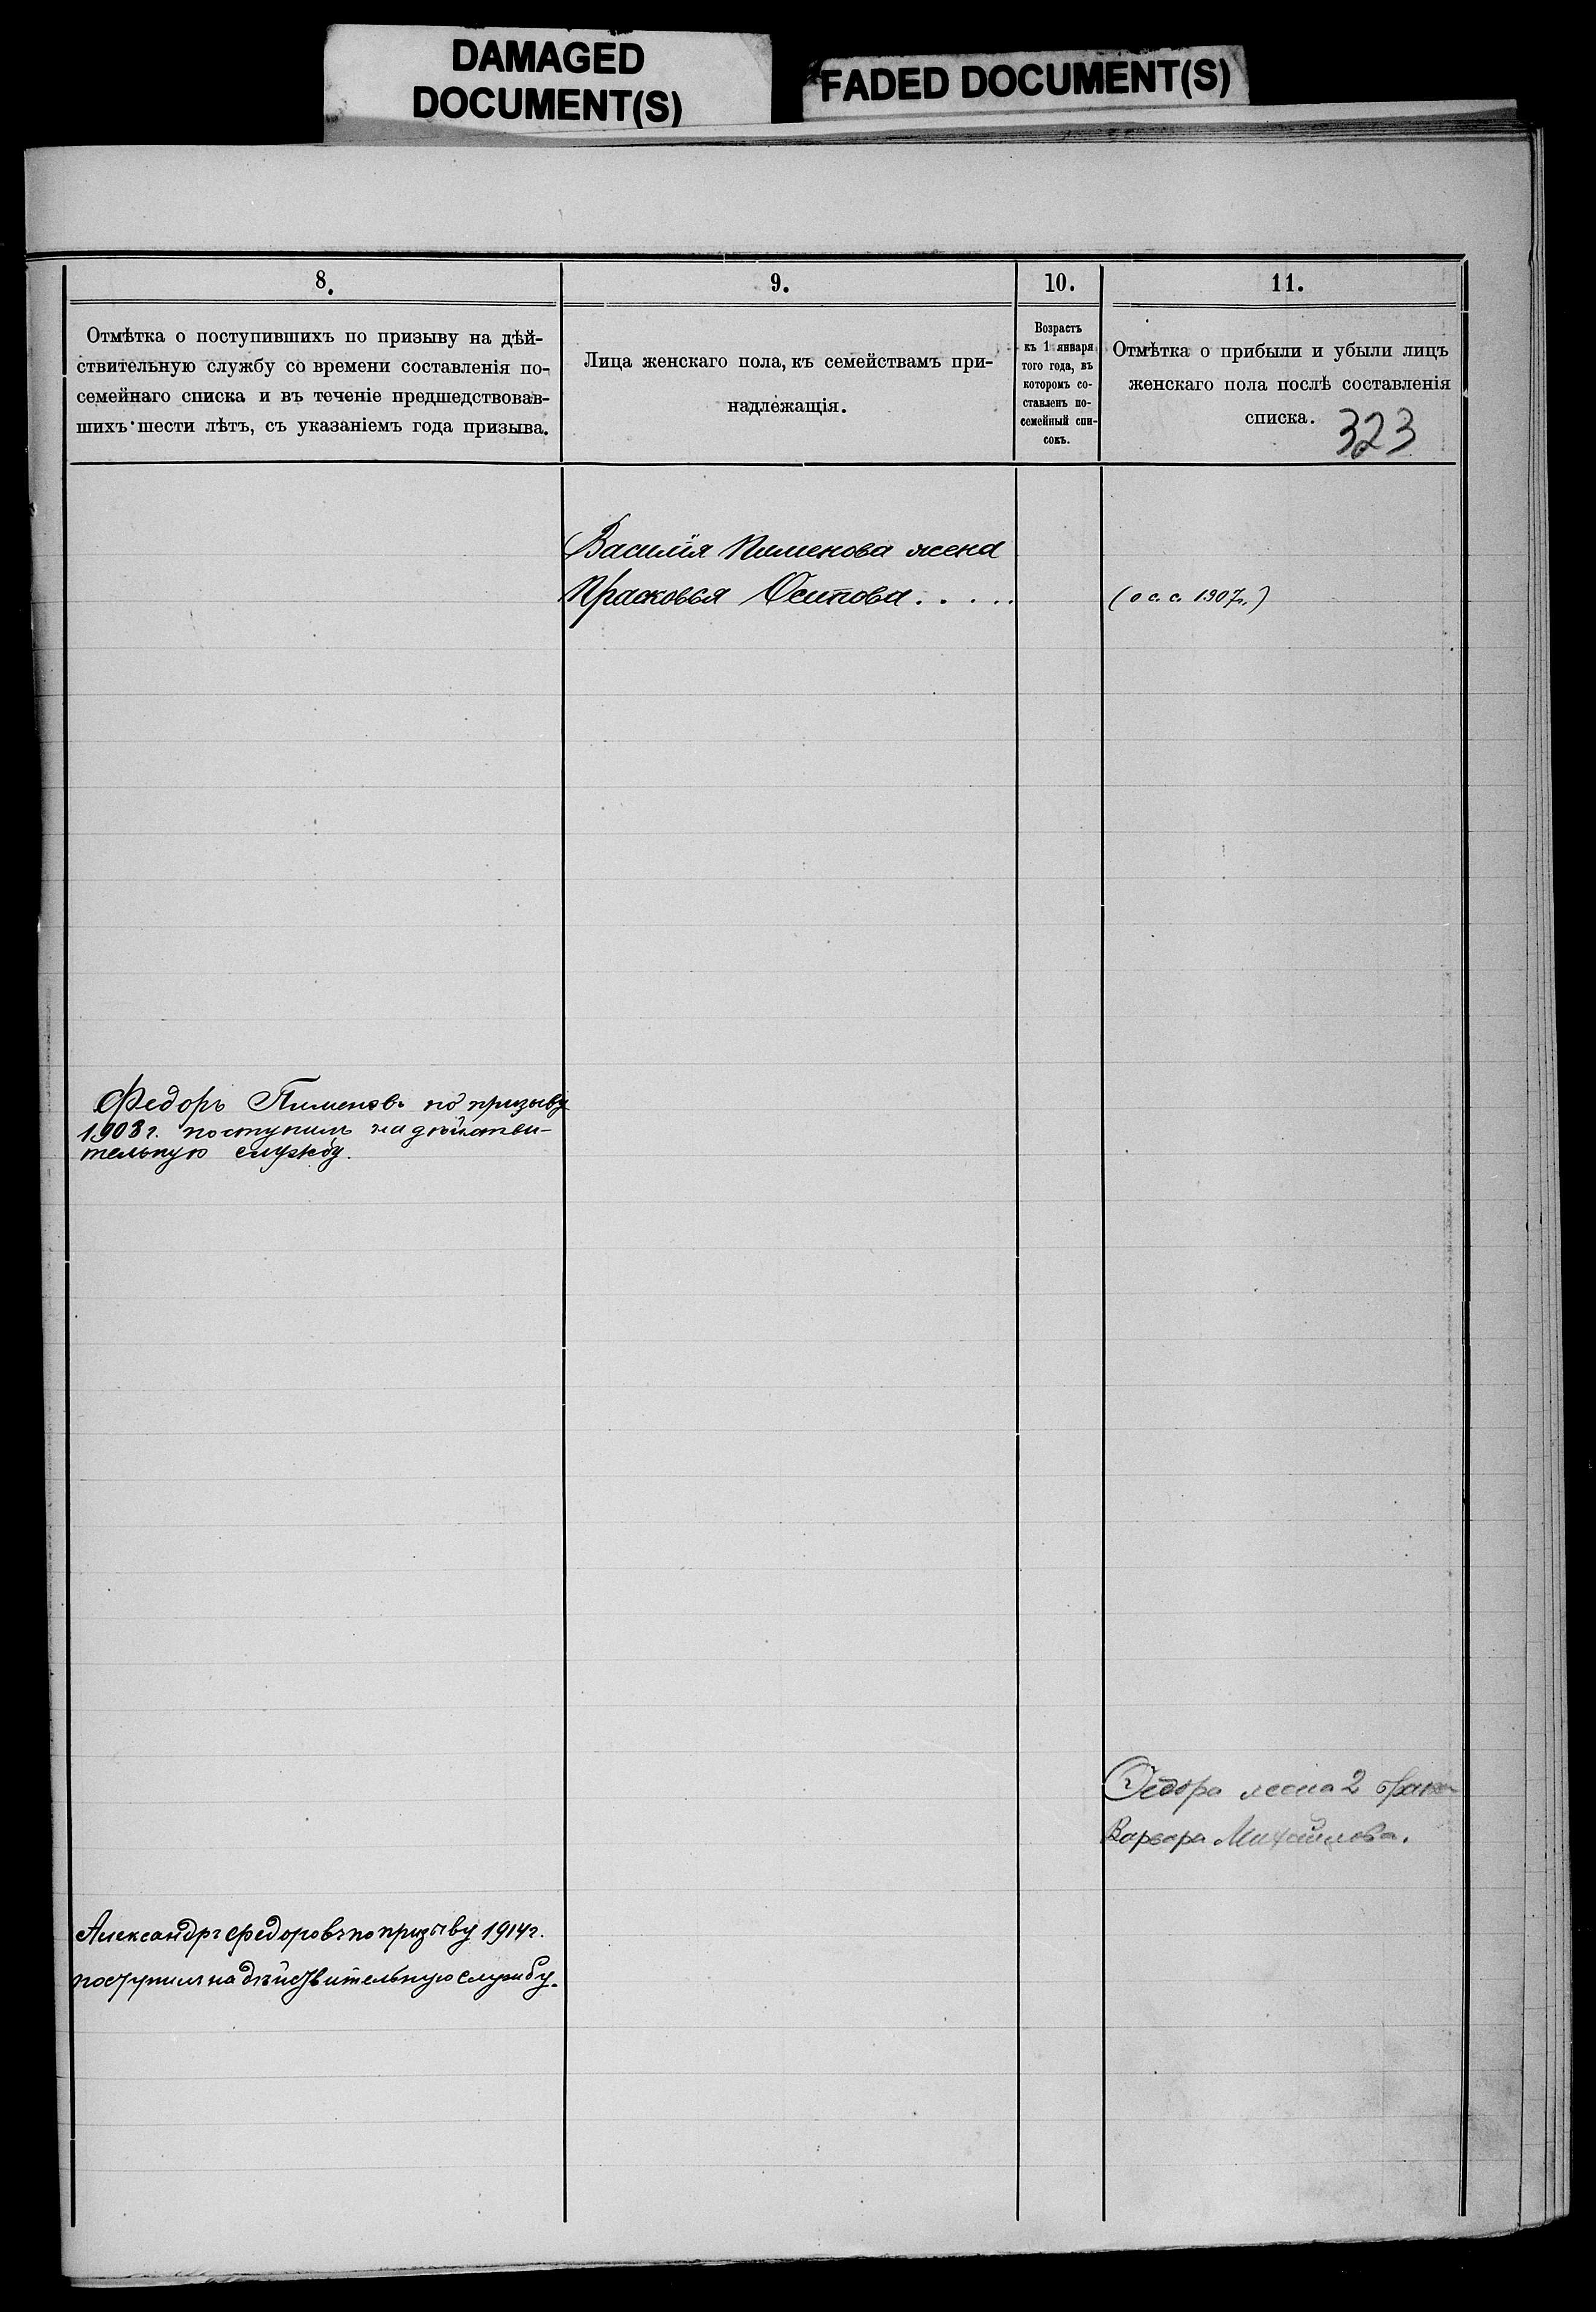 DAMAGED
DOCUMENT(S)
FADED DOCUMENT(S)
8.
Отмѣтка о поступившихъ по призыву на дѣй-
ствительную службу со времени составленія по-
семейнаго списка и въ теченіе предшедствовав-
шихъ шести лѣтъ, съ указаніемъ года призыва.
9.
Лица женскаго пола, къ семействамъ при-
надлежащія.
10.
Возрастъ
къ 1 января
того года, въ
которомъ со-
ставленъ по-
семейный спи-
сокъ.
11.
Отмѣтка о прибыли и убыли лицъ
женскаго пола послѣ составленія
списка.
323
Василія Пименова жена
Прасковья Осипова . . . . .
(о с. с. 1907г.)
Федоръ Пименовъ по призыву
1903 г. поступилъ на дѣйстви-
тельную службу.
Ѳедора жена 2 брака
Варвара Михайлова.
Александръ Федоровъ по призыву 1914 г.
поступилъ на дѣйствительную службу.